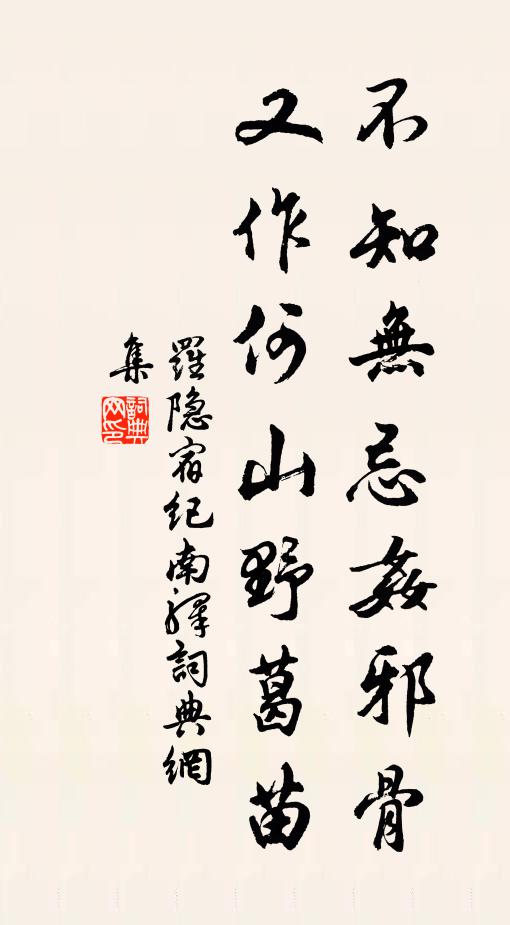 不知無忌姦邪骨
又作何山野葛苗
羅隐宿紀南驛詞典網
集
詞典
网印